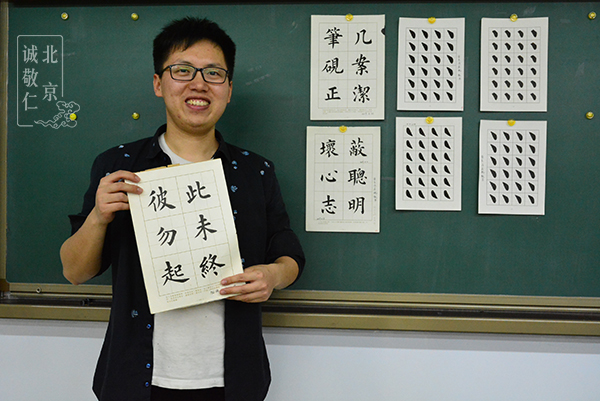 北京
诚敬仁
几案潔
筆硯正
蔽聰明
壞心志
此未終
彼勿起